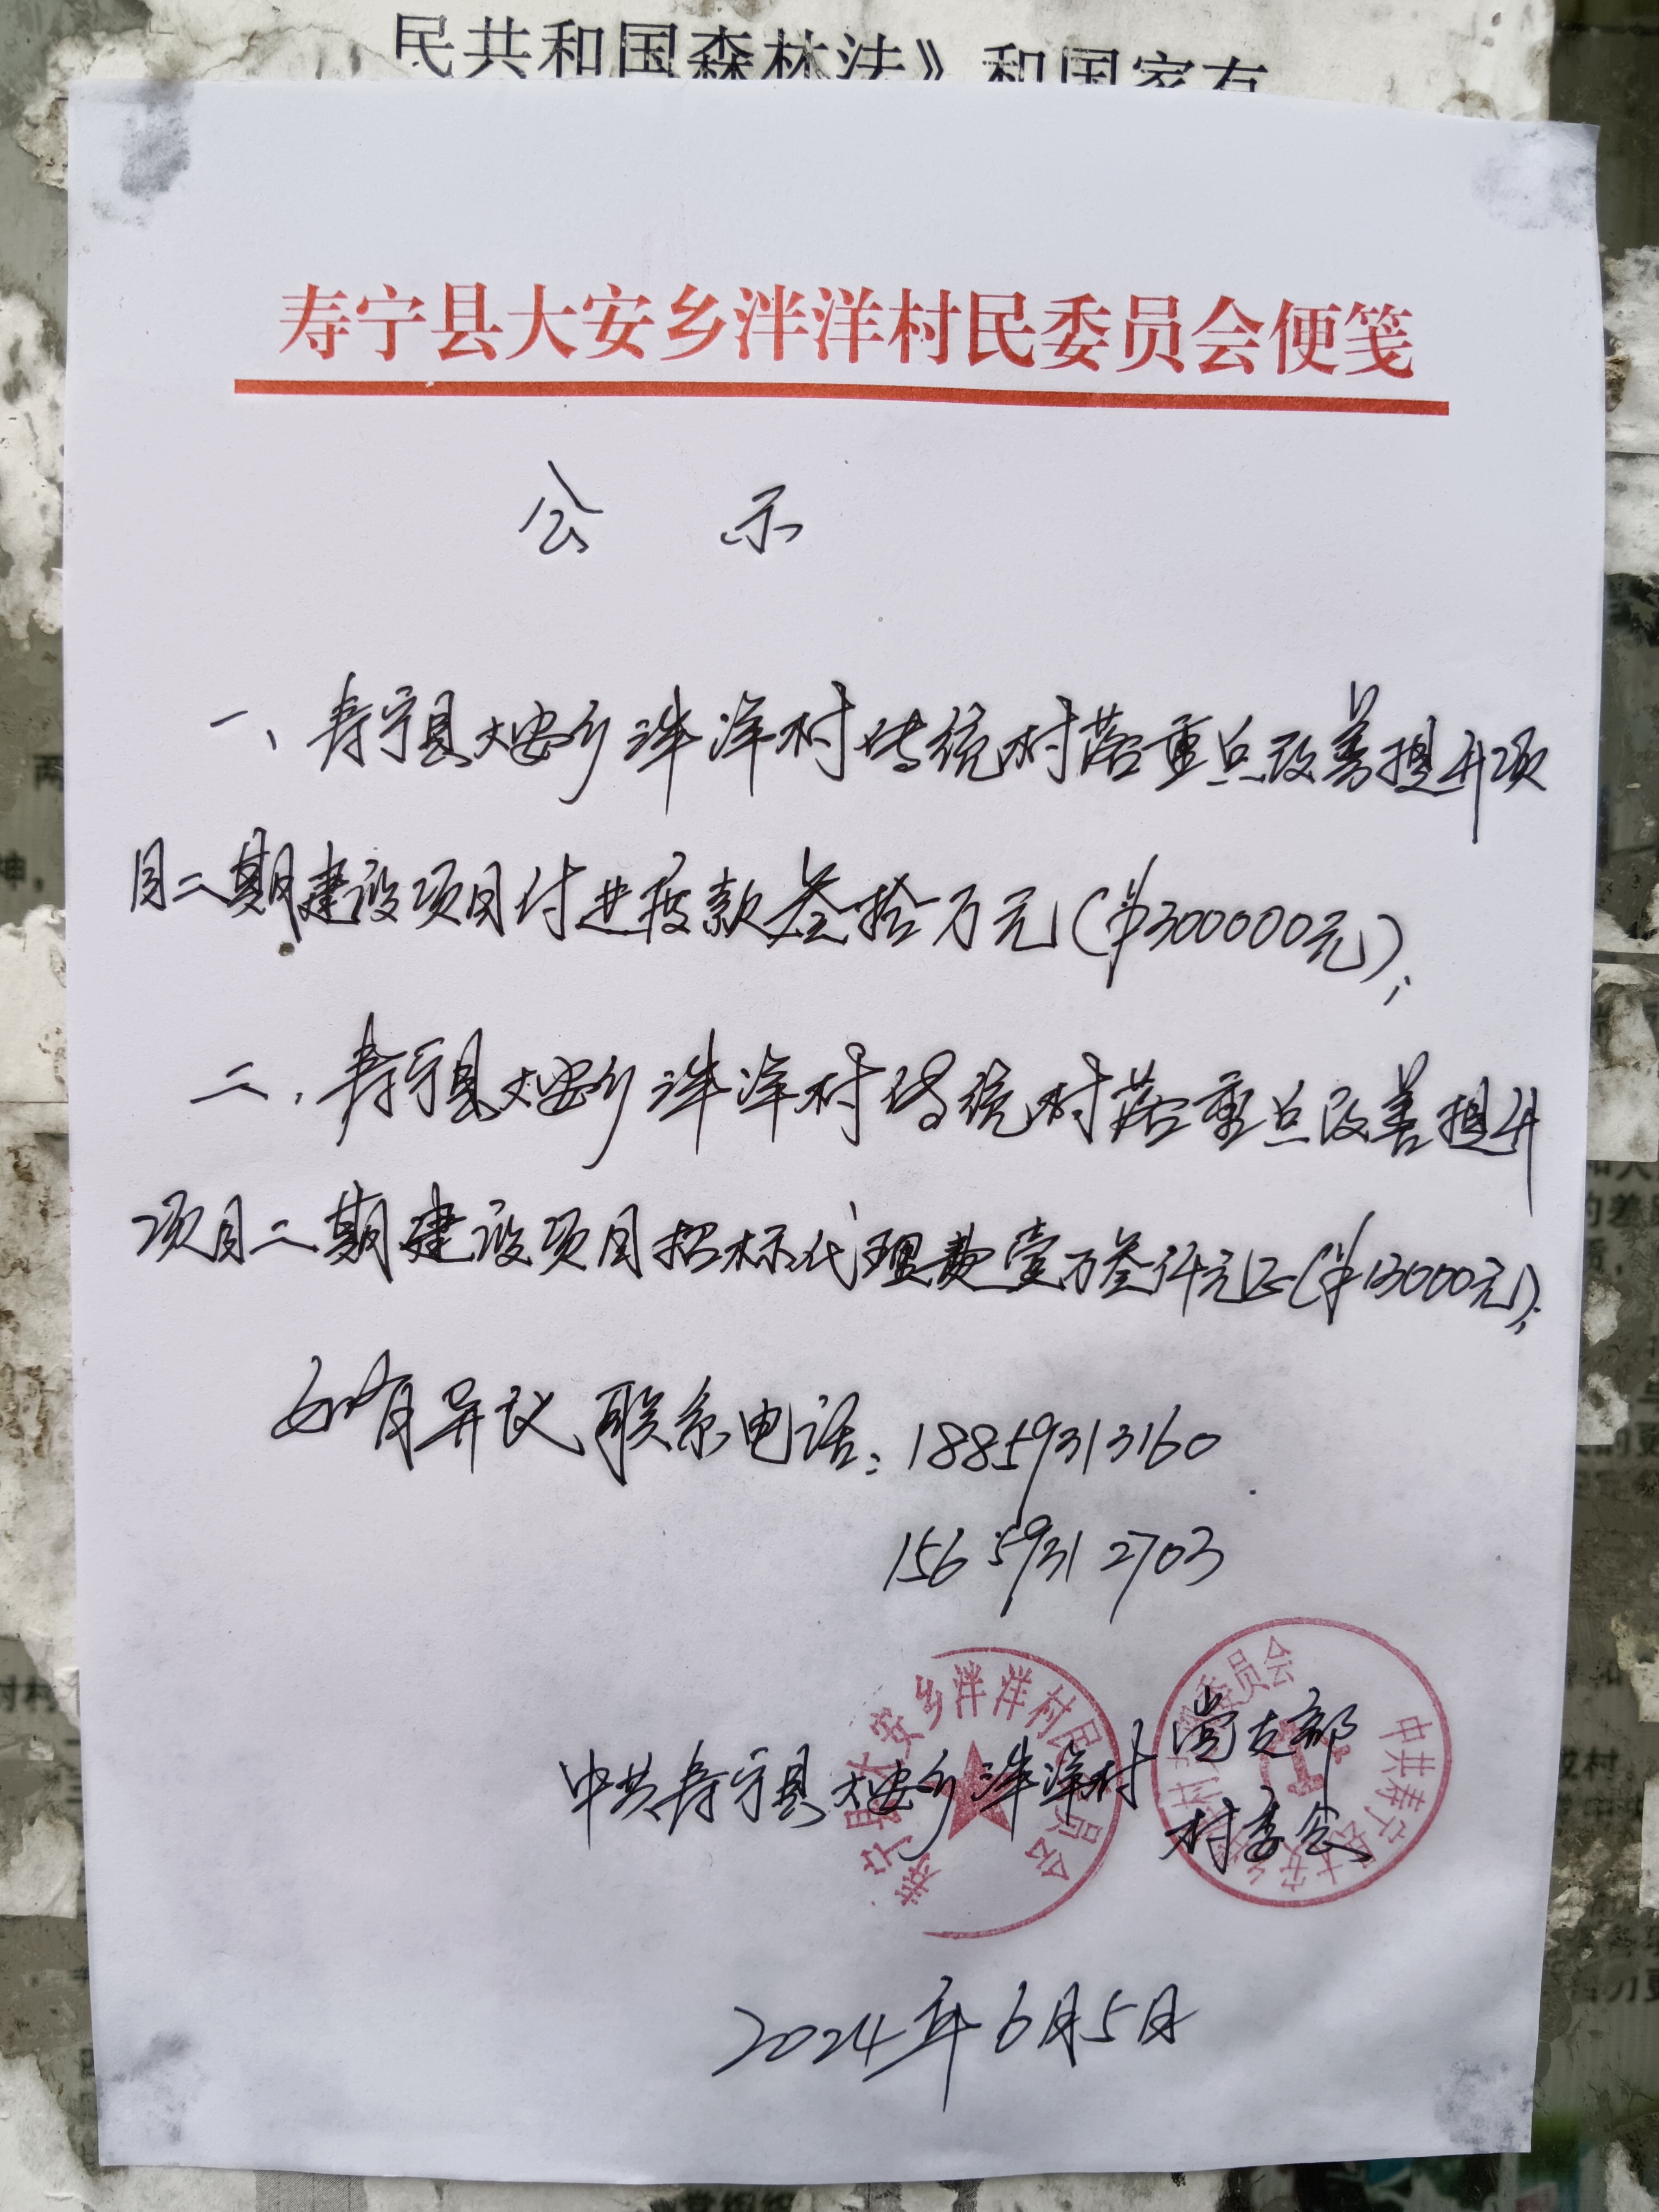 民共和国森林法》和国家有
寿宁县大安乡泮洋村民委员会便笺
公 示
一、寿宁县大安乡泮洋村传统村落重点改善提升项
目二期建设项目付进度款叁拾万元(¥300000元);
二、寿宁县大安乡泮洋村传统村落重点改善提升
项目二期建设项目招标代理费壹万叁仟元正(¥13000元);
如有异议联系电话:18859313160
15659312703
寿宁县大安乡泮洋村民委员会
中共寿宁县大安乡泮洋村党支部
村委会
中共寿宁县大安乡泮洋村委员会
2024年6月5日